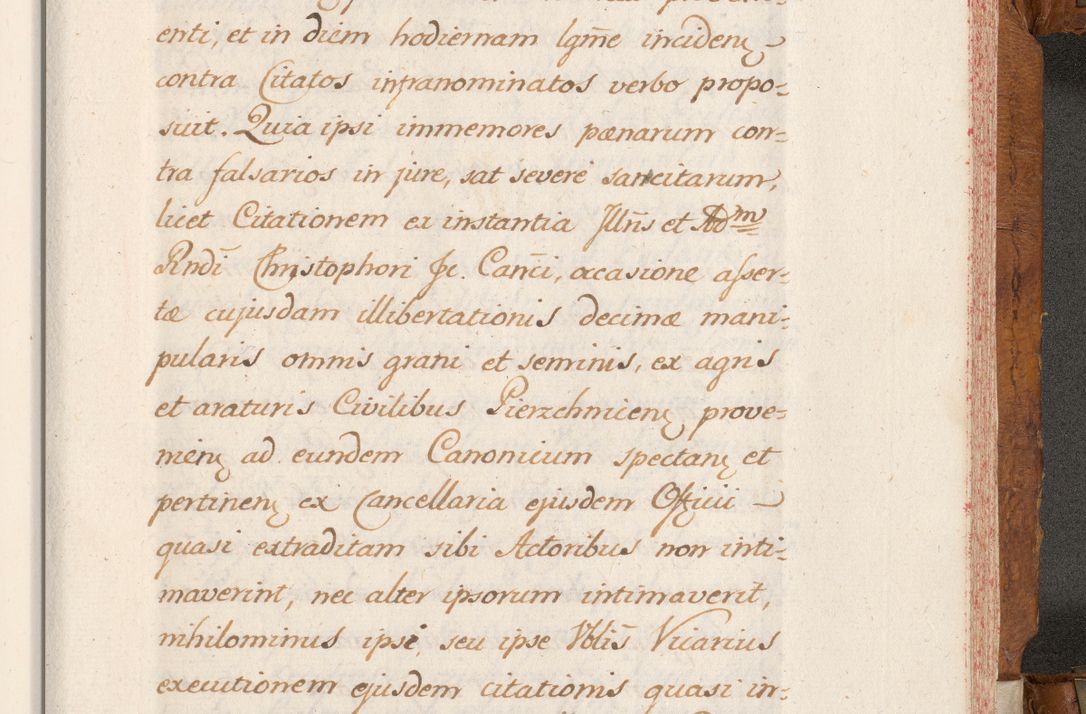 enti, et in diem hodiernam lgm̃e inciden̨
contra Citatos infranominatos verbo propo=
suit. Quia ipsi immemores pœnarum con=
tra falsarios in jure, sat severè sancitarum,
licet Citationem ex instantia Jllñis et Adm
Rndĩ Christophori Jc. Canc̃i, occasione asser=
tæ cujusdam illibertationis decimæ mani=
pularis omnis grani et seminis, ex agris
et araturis Civilibus Pierzchnicen̨ prove=
nien̨ ad eundem Canonicum spectan̨ et
pertinen̨ ex Cancellaria ejusdem Officii
quasi extraditam sibi Actoribus non inti=
maverint, nec alter ipsorum intimaverit,
nihilominus ipsi, seu ipse Nblĩs Vicarius
executionem ejusdem citationis quasi in=